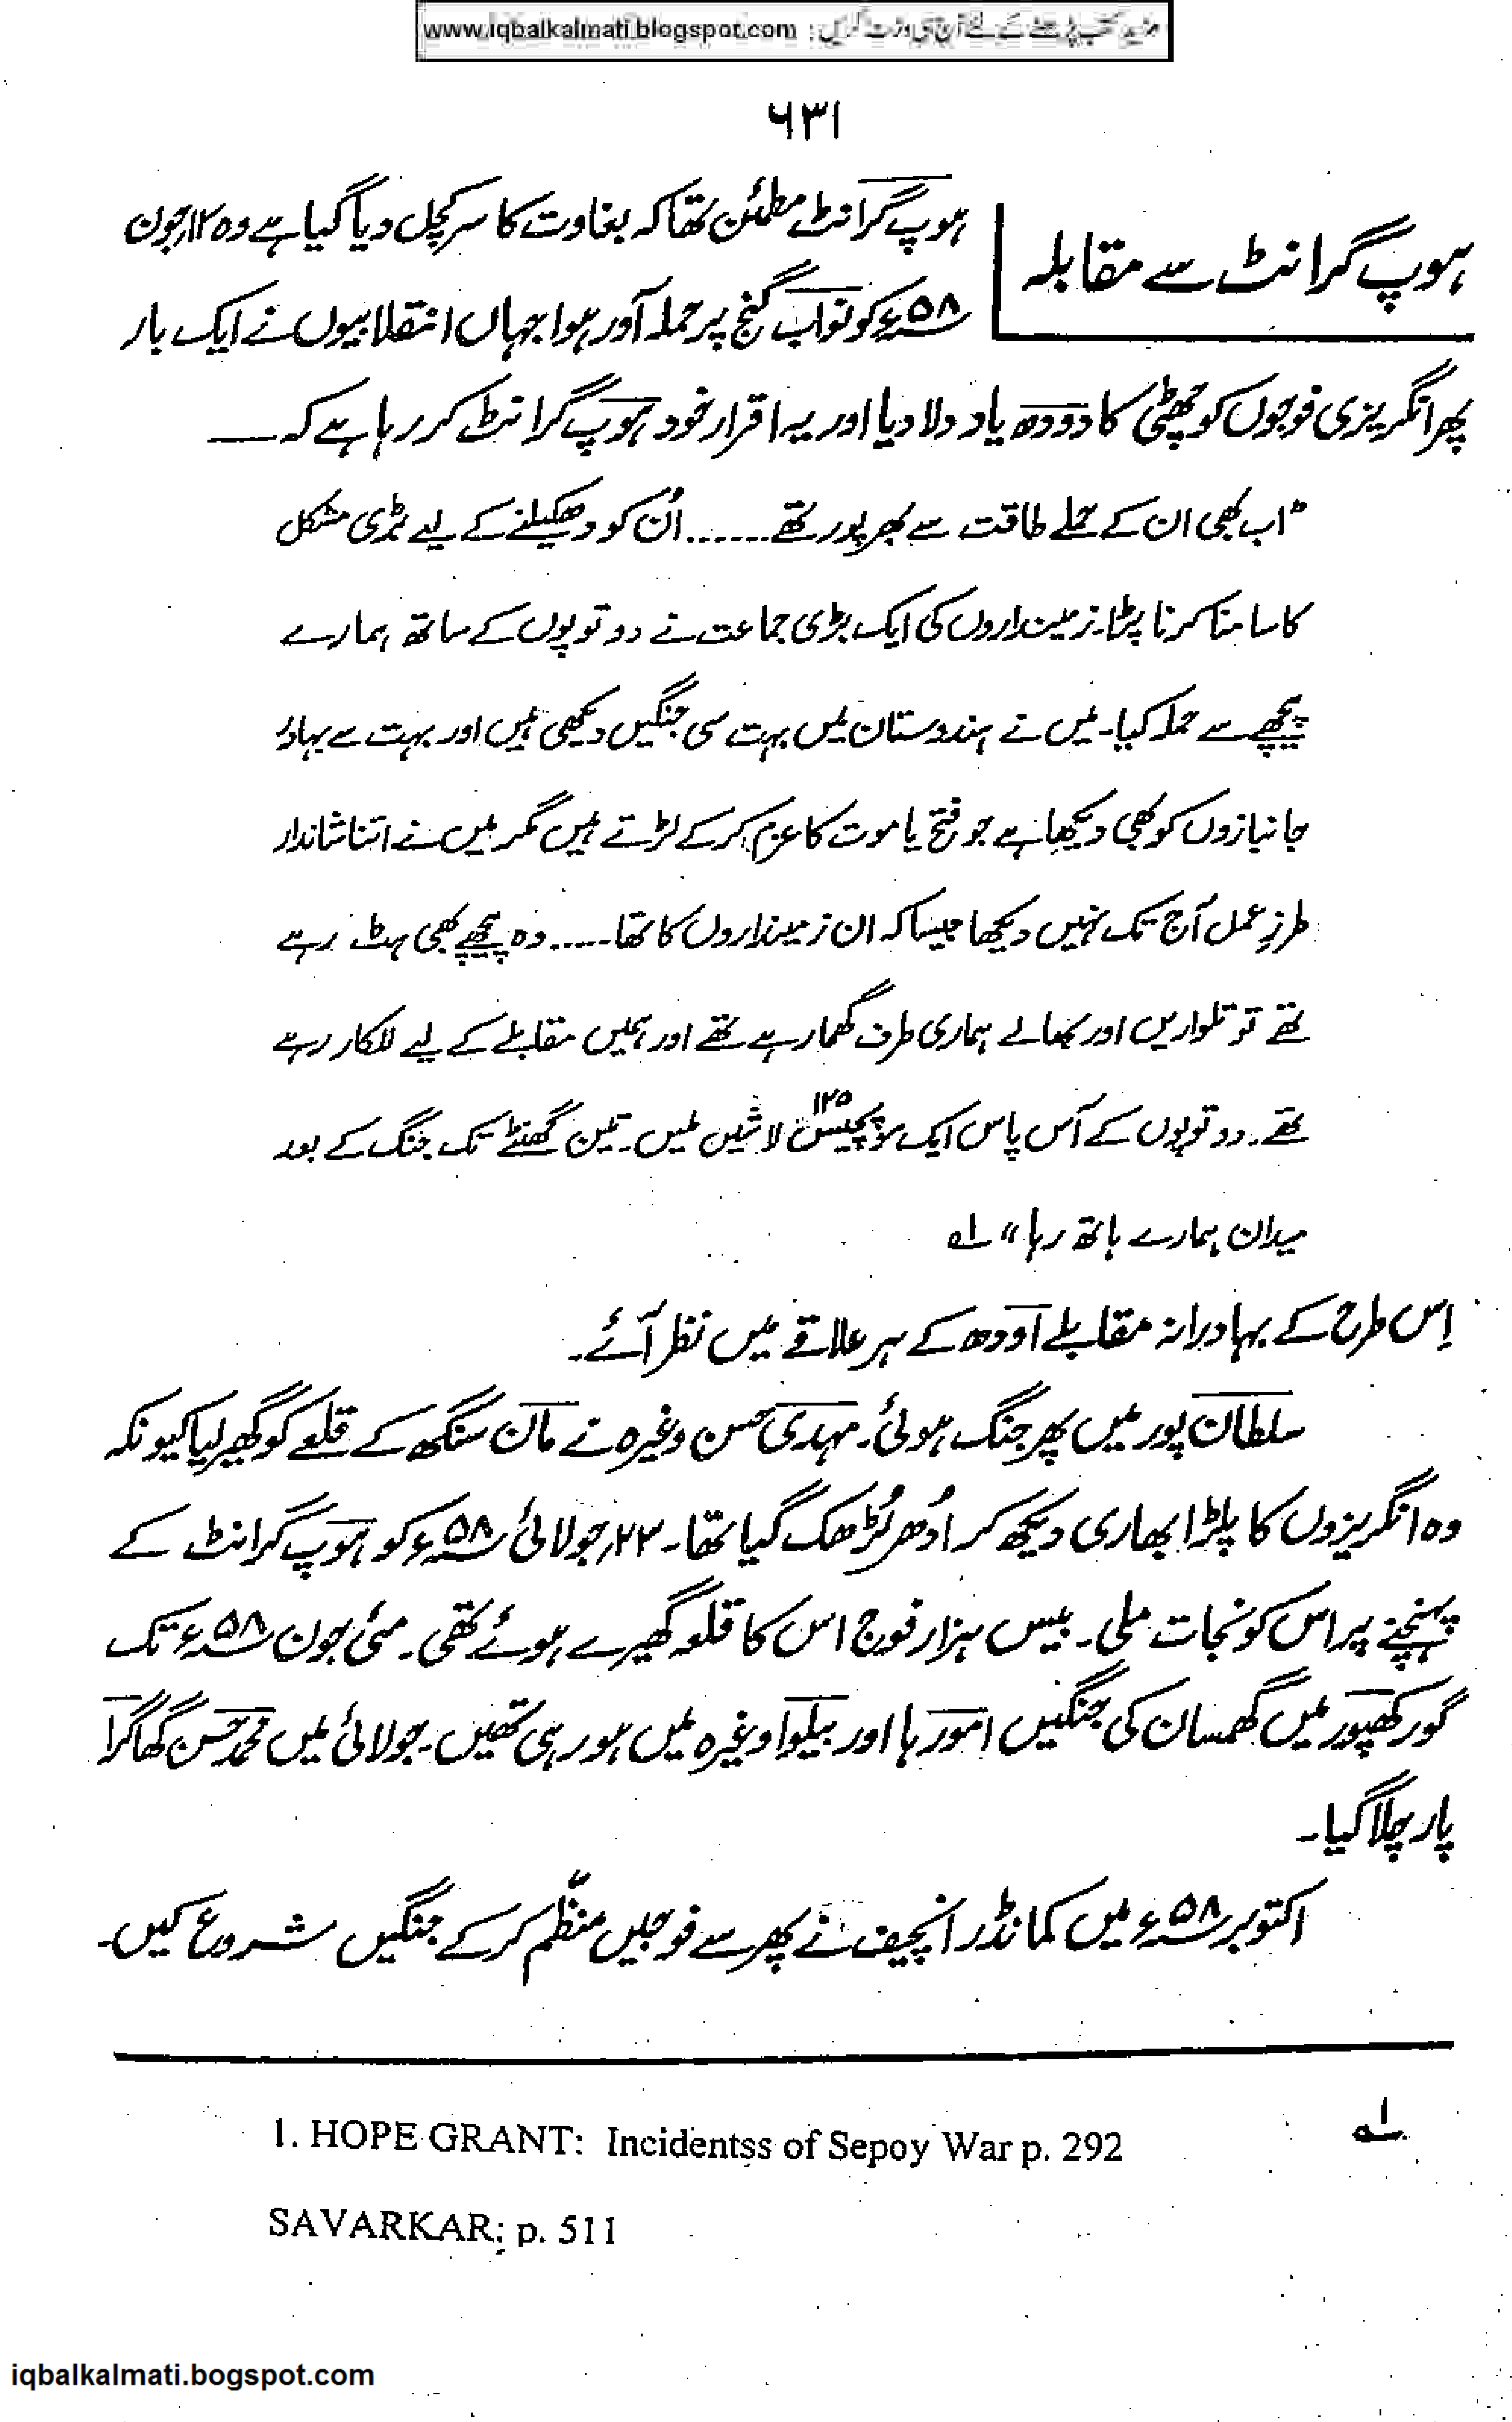 مزید کتب پڑھنے کے لئے آج ہی وزٹ کریں : www.iqbalkalmati.blogspot.com
۶۳۱
ہوپ گرانٹ سے مقابلہ
ہوپ گرانٹ مطمئن تھا کہ بغاوت کا سر کچل دیا گیا ہے وہ ۱۲؍جون
۵۸ء کو نواب گنج پر حملہ آور ہوا جہاں انقلابیوں نے ایک بار
پھر انگریزی فوجوں کو چھٹی کا دودھ یاد دلا دیا اور یہ اقرار خود ہوپ گرانٹ کر رہا ہے کہ ــــ
"اب بھی ان کے حملے طاقت سے بھرپور تھے ...... اُن کو دھکیلنے کے لیے بڑی مشکل
کا سامنا کرنا پڑا۔ زمینداروں کی ایک بڑی جماعت نے دو توپوں کے ساتھ ہمارے
پیچھے سے حملہ کیا۔ میں نے ہندوستان میں بہت سی جنگیں دیکھی ہیں اور بہت سے بہادر
جانبازوں کو بھی دیکھا ہے جو فتح یا موت کا عزم کر کے لڑتے ہیں مگر میں نے اتنا شاندار
طرزِ عمل آج تک نہیں دیکھا جیسا کہ ان زمینداروں کا تھا ..... وہ پیچھے بھی ہٹ رہے
تھے تو تلواریں اور بھالے ہماری طرف گھما رہے تھے اور ہمیں مقابلے کے لیے للکار رہے
تھے۔ دو توپوں کے آس پاس ایک سو پچیس ۱۲۵ لاشیں ملیں۔ تین گھنٹے تک جنگ کے بعد
میدان ہمارے ہاتھ رہا" ۱؎
اِس طرح کے بہادرانہ مقابلے اودھ کے ہر علاقے میں نظر آئے۔
سلطان پور میں پھر جنگ ہوئی۔ مہدی حسن وغیرہ نے مان سنگھ کے قلعے کو گھیر لیا کیونکہ
وہ انگریزوں کا پلڑا بھاری دیکھ کر اُدھر لُڑھک گیا تھا۔ ۲۳؍جولائی ۵۸ء کو ہوپ گرانٹ کے
پہنچنے پر اس کو نجات ملی۔ بیس ہزار فوج اس کا قلعہ گھیرے ہوئے تھی۔ مئی جون ۵۸ء تک
گورکھپور میں گھمسان کی جنگیں امورہا اور بیلوا وغیرہ میں ہو رہی تھیں۔ جولائی میں محمد حسن گھاگرا
پار چلا گیا۔
اکتوبر ۵۸ء میں کمانڈر انچیف نے پھر سے فوجیں منظّم کر کے جنگیں شروع کیں۔
۱؎ 1. HOPE GRANT: Incidentss of Sepoy War p. 292
SAVARKAR: p. 511
iqbalkalmati.bogspot.com